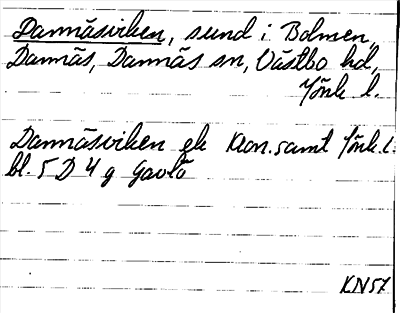 Dannäsviken, sund i Bolmen,
Dannäs, Dannäs sn, Västbo hd,
Jönk l.
Dannäsviken ek Kron. samt Jönk. l.
bl. 5 D 4 g Gavlö
KN57